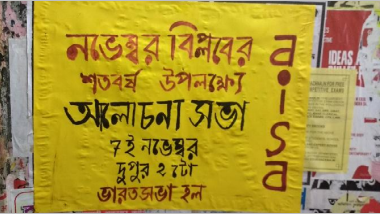 নভেম্বর বিপ্লবের
শতবর্ষ উপলক্ষ্যে
আলোচনা সভা
৭ই নভেম্বর
দুপুর ২ টো
ভারতসভা হল
aisa
IDEAS